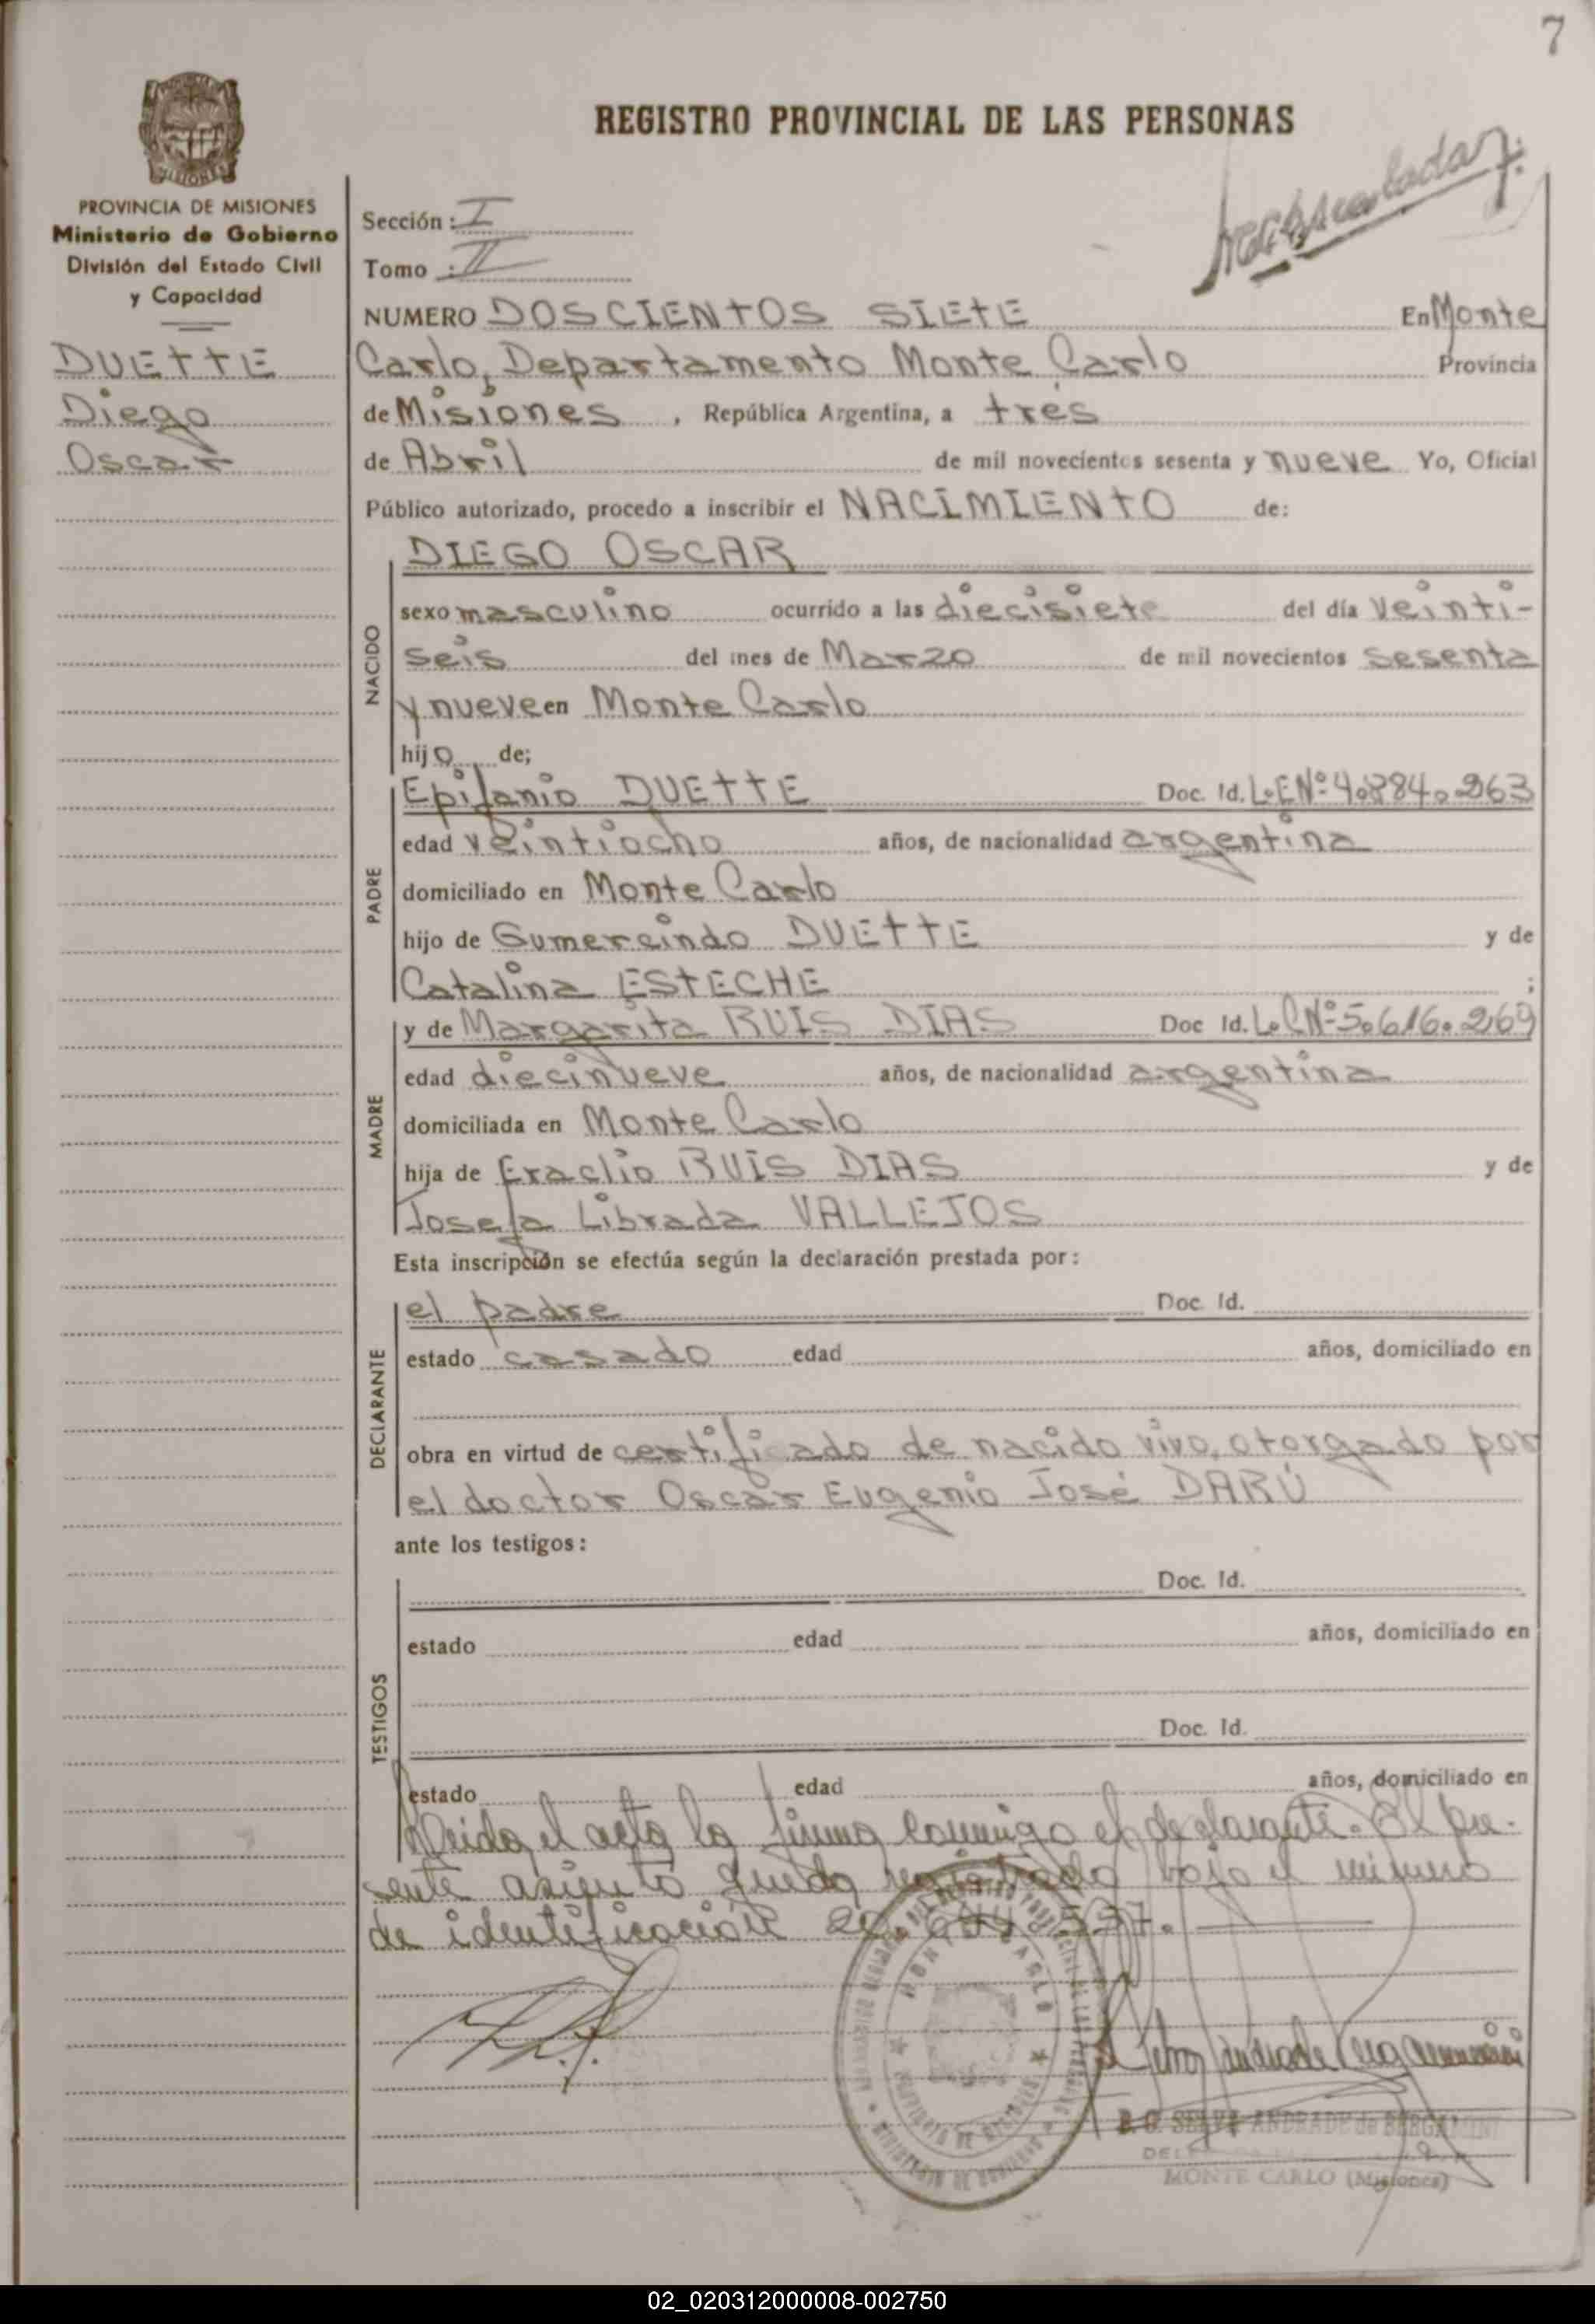 7
REGISTRO PROVINCIAL DE LAS PERSONAS
MISIONES
PROVINCIA DE MISIONES
Ministerio de Gobierno
División del Estado Civil
y Capacidad
DUETTE
Diego
Oscar
Sección : I
Tomo : II
NUMERO DOSCIENTOS SIETE En Monte
Carlo, Departamento Monte Carlo Provincia
de Misiones , República Argentina, a tres
de Abril de mil novecientos sesenta y nueve Yo, Oficial
Público autorizado, procedo a inscribir el NACIMIENTO de:
NACIDO
DIEGO OSCAR
sexo masculino ocurrido a las diecisiete del día veinti-
seis del mes de Marzo de mil novecientos sesenta
y nueve en Monte Carlo
hijo de;
PADRE
Epifanio DUETTE Doc. Id. L.E.Nº 4.884.263
edad veintiocho años, de nacionalidad argentina
domiciliado en Monte Carlo
hijo de Gumercindo DUETTE y de
Catalina ESTECHE ;
MADRE
y de Margarita RUIS DIAS Doc Id. L.C.Nº 5.616.269
edad diecinueve años, de nacionalidad argentina
domiciliada en Monte Carlo
hija de Eraclio RUIS DIAS y de
Josefa Librada VALLEJOS
Esta inscripción se efectúa según la declaración prestada por:
DECLARANTE
el padre Doc. Id.
estado casado edad años, domiciliado en
obra en virtud de certificado de nacido vivo, otorgado por
el doctor Oscar Eugenio José DARÚ
ante los testigos:
TESTIGOS
Doc. Id.
estado edad años, domiciliado en
Doc. Id.
estado edad años, domiciliado en
Leida el acta la firma conmigo el declarante. El pre-
sente asiento queda registrado bajo el número
de identificación
MONTE CARLO
PROVINCIA DE MISIONES
MINISTERIO DE GOBIERNO
SELVA ANDRADE de BERGAMINI
MONTE CARLO (Misiones)
02_020312000008-002750